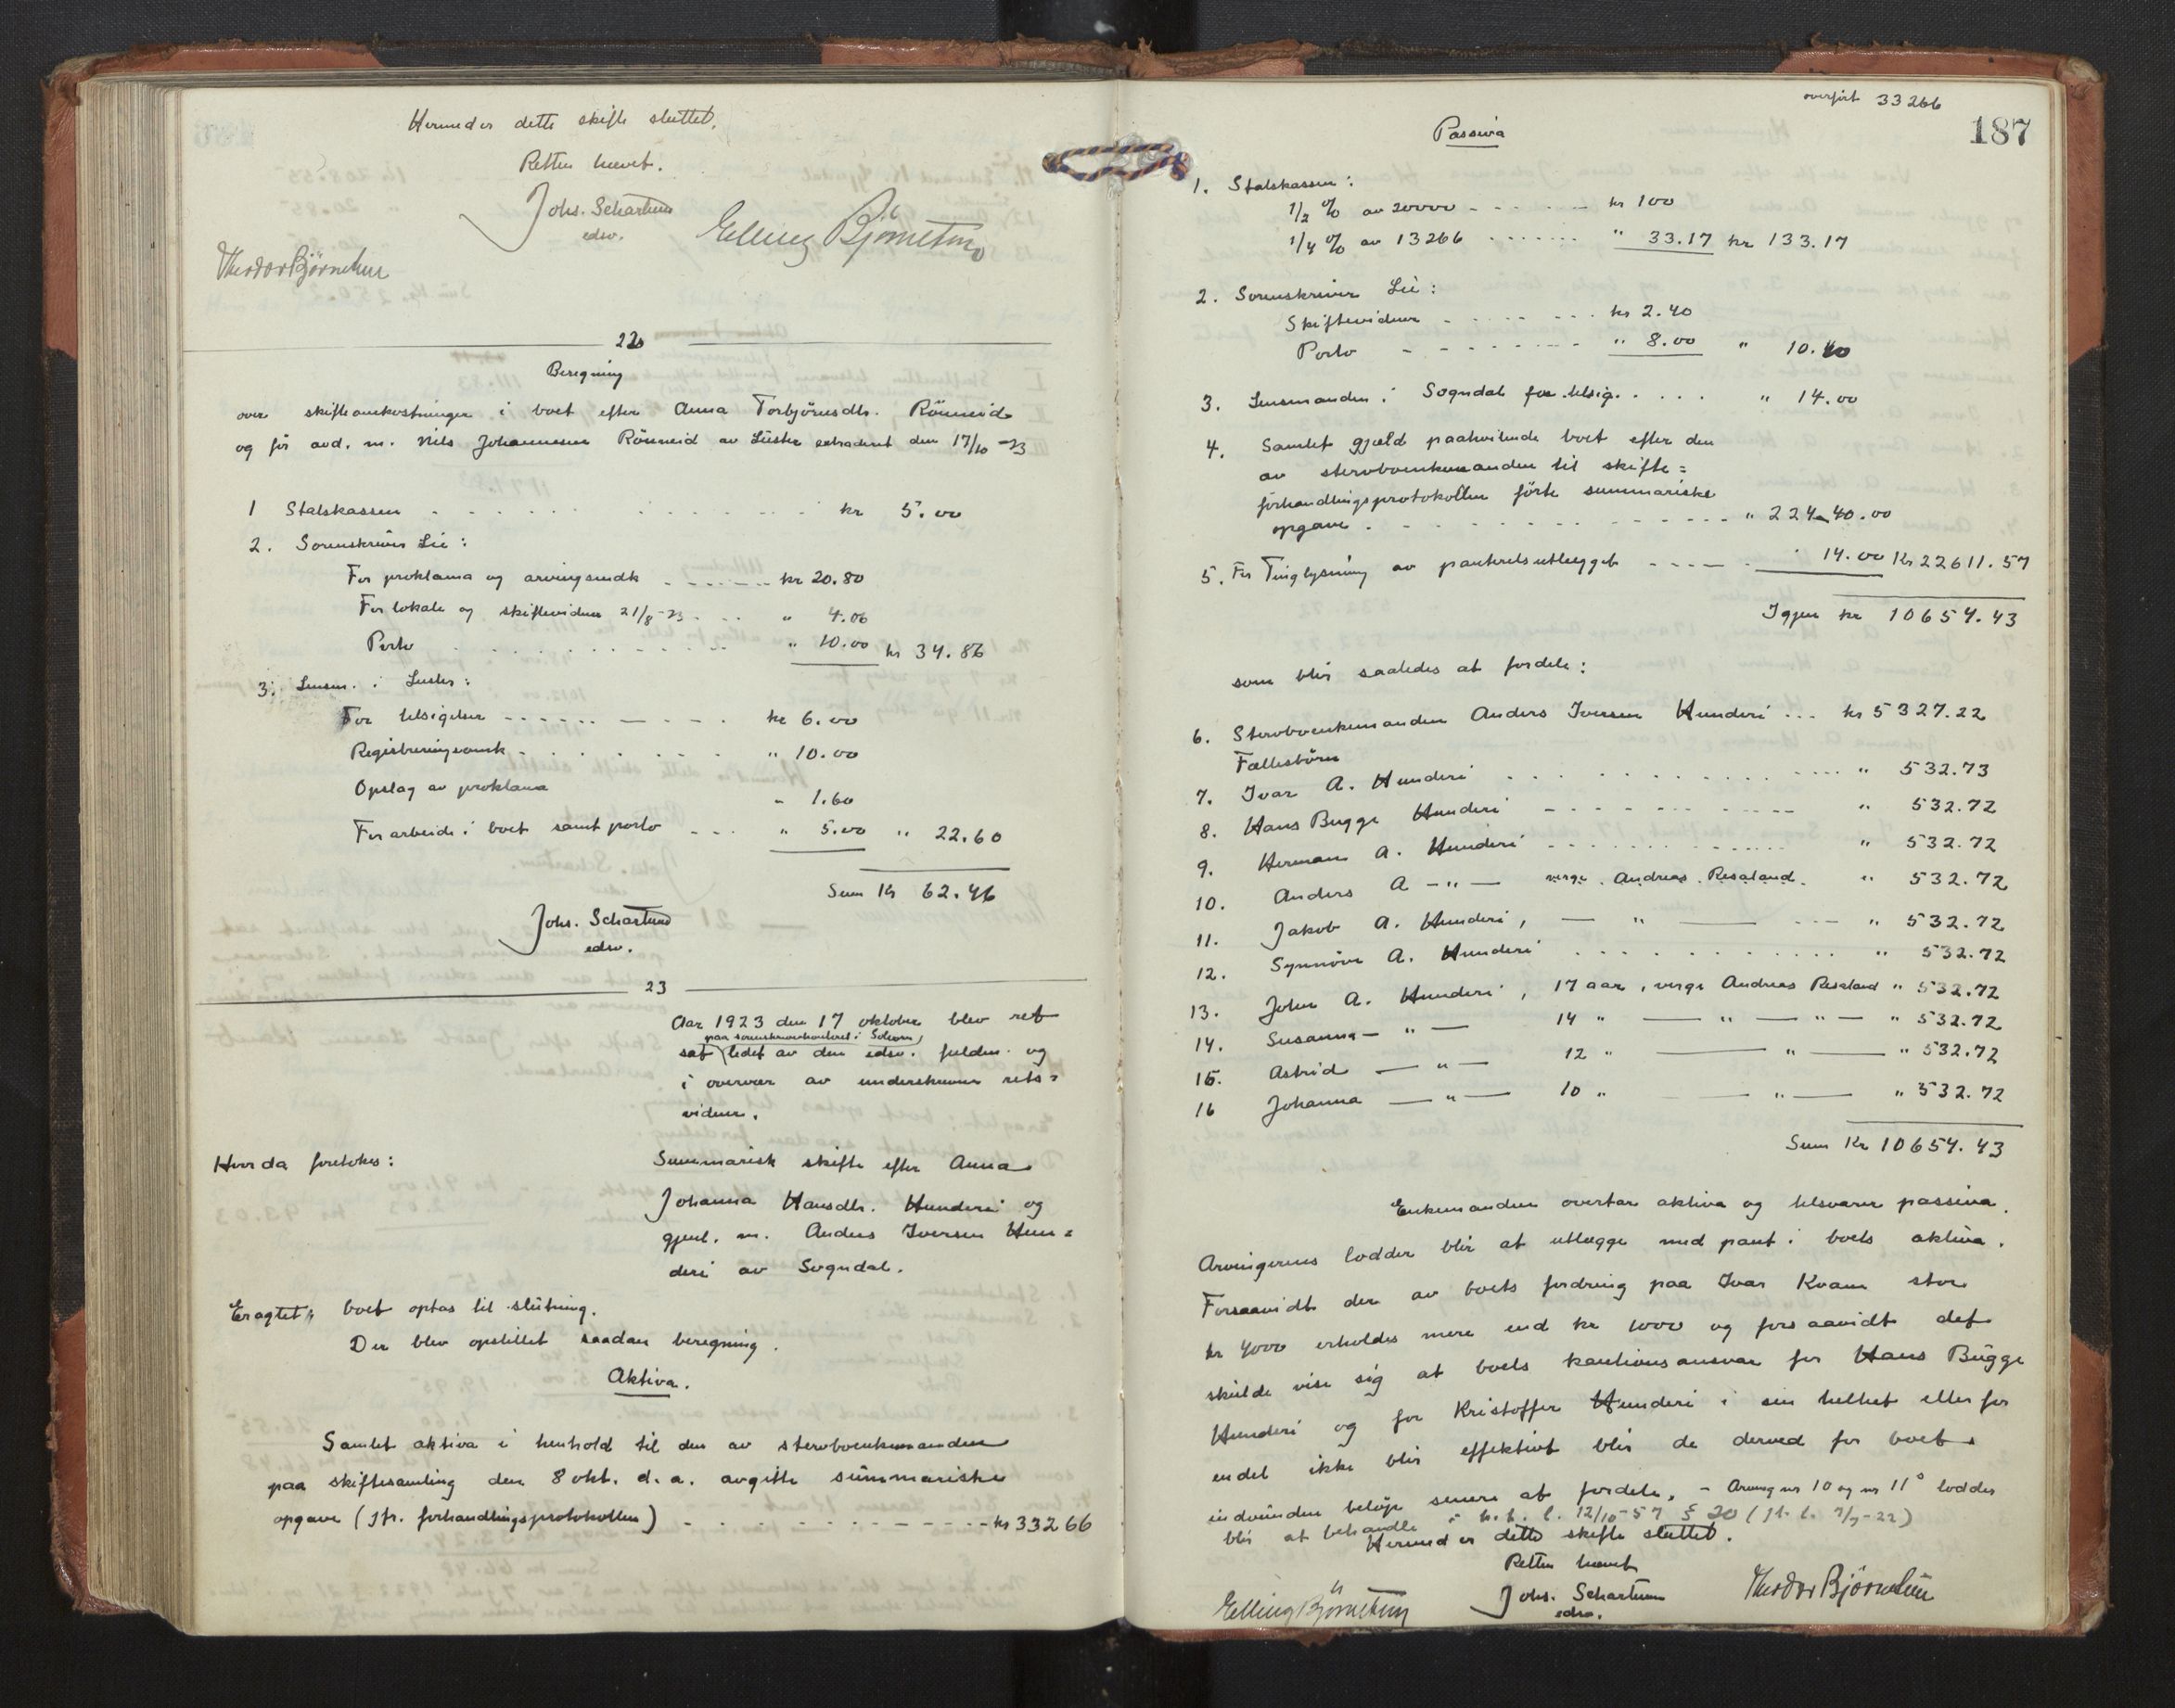 Hermed er dette skifte sluttet.
Retten hævet.
Johs. Schartum
edsv.
Elling Björnetun
Theodor Björnetun
22
Beregning
over skifteomkostninger i boet efter Anna Torbjörnsdtr. Rönneid
og för avd. m. Nils Johannesen Rönneid av Lüster extradert den 17/10-23
1 Statskassen . . . . . . kr 5.00
2. Sorenskriver Lie:
For proklama og arvingsindk - - - - - kr 20.80
For lokale og skiftevidner 21/8-23 . . . " 4.06
Porto . . . . . . . " 10.00 kr 34.86
3. Lensm. i Luster:
For tilsigelser - - - - - - - kr 6.00
Registreringsomk - . . . . . " 10.00
Opslag av proklama " 1.60
For arbeide i boet samt porto - - - " 5.00 " 22.60
Sum Kr 62.46
Johs. Schartum
edsv.
23
Aar 1923 den 17 oktober blev ret
paa sorenskriverkontoret i Solvorn,
sat ledet av den edsv. fuldm. og
i overvær av underskrevne rets=
vidner.
Hvor da foretokes:
Summarisk skifte efter Anna
Johanna Hansdtr. Hunderi og
gjenl. m. Anders Iversen Hun=
deri av Sogndal.
Eragtet: boet optas til slutning.
Der blev opstillet saadan beregning.
Aktiva.
Samlet aktiva i henhold til den av stervboenkemanden
paa skiftesamling den 8 okt. d. a. avgitte summariske
opgave (jfr. forhandlingsprotokollen) - - - - - - - kr 33266
overfört 33266
187
Passiva
1. Statskassen:
1/2 % av 20000 - - - - - - kr 100
1/4 % av 13266 . . . . . . . " 33.17 kr 133.17
2. Sorenskriver Lie:
Skiftevidner - . . . . . . kr 2.40
Porto - - - - - - - - " 8.00 " 10.40
3. Lensmanden i Sogndal for tilsig. . . . . " 14.00
4. Samlet gjæld paahvilende boet efter den
av stervboenkemanden til skifte=
forhandlingsprotokollen förte summariske
opgave . - - - - - - - - - - " 224 40.00
5. For Tinglysning av panterets utlægget - - - - - 14.00 Kr 22611.57
Igjen kr 10654.43
som blir saaledes at fordele:
6. Stervboenkemanden Anders Iversen Hunderi ... kr 5327.22
Fællesbörn
7. Ivar A. Hunderi . . . . . . . . . . " 532.73
8. Hans Bugge Hunderi - - - - - - - - " 532.72
9. Herman A. Hunderi - - - - - - - " 532.72
10. Anders A — " — verge Andreas Resaland. " 532.72
11. Jakob A. Hunderi, — " — - - - " 532.72
12. Synnöve A. Hunderi . . . . . . . . " 532.72
13. John A. Hunderi, 17 aar, verge Andreas Resaland " 532.72
14. Susanna — " — 14 " — " — " — " 532.72
15. Astrid — " — 12 " — " — " 532.72
16 Johanna — " — 10 " — " — " 532.72
Sum Kr 10654.43
Enkemanden overtar aktiva og tilsvarer passiva.
Arvingernes lodder blir at utlægge med pant i boets aktiva.
Forsaavidt der av boets fordring paa Ivar Kvam stor
kr 4000 erholdes mere end kr 1000 og forsaavidt det
skulde vise sig at boets kautionsansvar for Hans Bügge
Hunderi og for Kristoffer Hunderi i sin helhet eller for
endel ikke blir effektivt blir de derved for boet
indvundne belöp senere at fordele. - Arving nr 10 og nr 11s lodder
blir at behandle i h. t. l. 12/10-57 § 20 (jfr. l. 7/7-22)
Hermed er dette skifte sluttet.
Retten hævet
Elling Björnetun
Johs. Schartum
edsv.
Theodor Björnetun